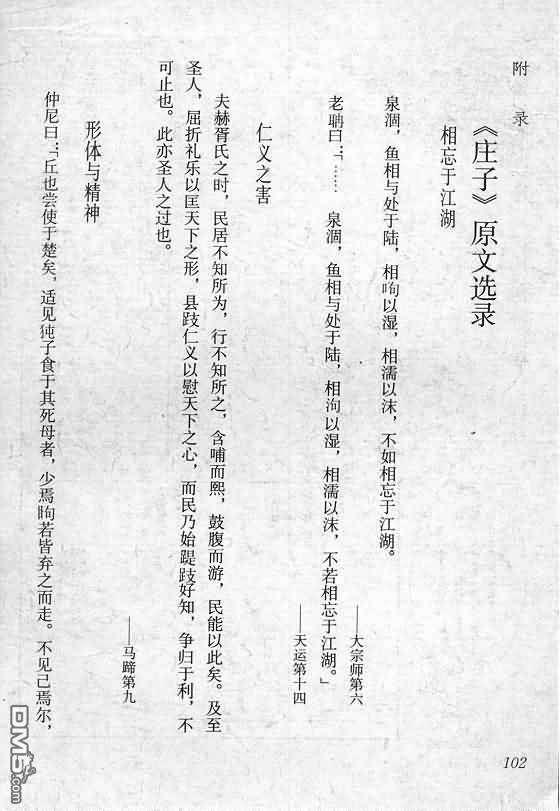 附录
《庄子》原文选录
相忘于江湖
泉涸，鱼相与处于陆，相呴以湿，相濡以沫，不如相忘于江湖。
——大宗师第六
老聃曰：“…… 泉涸，鱼相与处于陆，相泃以湿，相濡以沫，不若相忘于江湖。”
——天运第十四
仁义之害
夫赫胥氏之时，民居不知所为，行不知所之，含哺而熙，鼓腹而游，民能以此矣。及至
圣人，屈折礼乐以匡天下之形，县跂仁义以慰天下之心，而民乃始踶跂好知，争归于利，不
可止也。此亦圣人之过也。
——马蹄第九
形体与精神
仲尼曰：“丘也尝使于楚矣，适见㹠子食于其死母者，少焉眴若皆弃之而走。不见己焉尔，
102
DM5.com